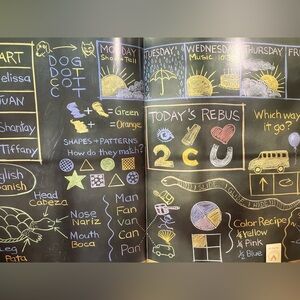 ART
elissa
JUAN
Shanlay
Tiffany
DOG
DOT
COT
COT
MONDAY
Show & Tell
TUESDAY
WEDNESDAY
Music 10:30
THURSDAY
FRI
= Green
= Orange
SHAPES + PATTERNS
How do they match?
TODAY'S REBUS
2 C U
Which way
it go?
English
Spanish
Head
Cabeza
Nose
Nariz
Mouth
Boca
Leg
Pata
Man
Fan
Van
Can
Pan
Color Recipe
Yellow
Pink
Blue